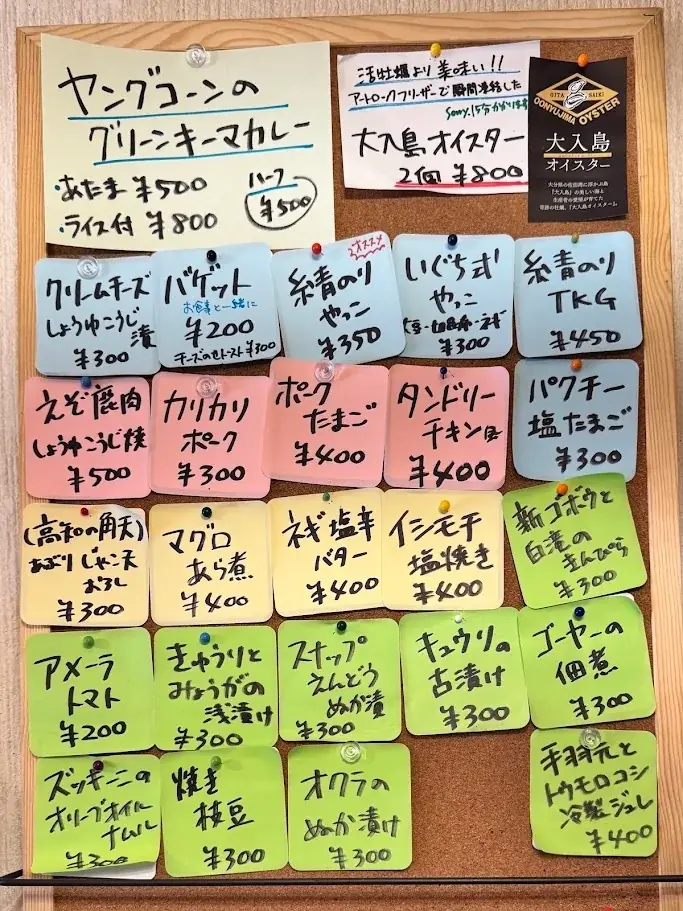 ヤングコーンの
グリーンキーマカレー
・あたま ¥500
・ライス付 ¥800
ハーフ
¥500
活牡蠣より美味い!!
アートロックフリーザーで瞬間凍結した
Sorry,15分かかります
大入島オイスター
2個 ¥800
OITA SAIKI
OONYUJIMA OYSTER
大入島
オイスター
大分県の佐伯湾に浮かぶ島
「大入島」の美しい海と
生産者の愛情が育てた
奇跡の牡蠣、「大入島オイスター」
クリームチーズ
しょうゆこうじ
漬
¥300
バゲット
お食事と一緒に
¥200
チーズのせトースト¥300
オススメ
糸青のり
やっこ
¥350
いぐち式
やっこ
¥300
糸青のり
TKG
¥450
えぞ鹿肉
しょうゆこうじ焼
¥500
カリカリ
ポーク
¥300
ポーク
たまご
¥400
タンドリー
チキン
¥400
パクチー
塩たまご
¥300
(高知の角天)
あぶりじゃこ天
おろし
¥300
マグロ
あら煮
¥400
ネギ塩辛
バター
¥400
イシモチ
塩焼き
¥400
新ゴボウと
白滝の
きんぴら
¥300
アメーラ
トマト
¥200
きゅうりと
みょうがの
浅漬け
¥300
スナップ
えんどう
ぬか漬
¥300
キュウリの
古漬け
¥300
ゴーヤーの
佃煮
¥300
ズッキーニの
オリーブオイル
ナムル
¥300
焼き
枝豆
¥300
オクラの
ぬか漬け
¥300
手羽元と
トウモロコシ
冷製ジュレ
¥400